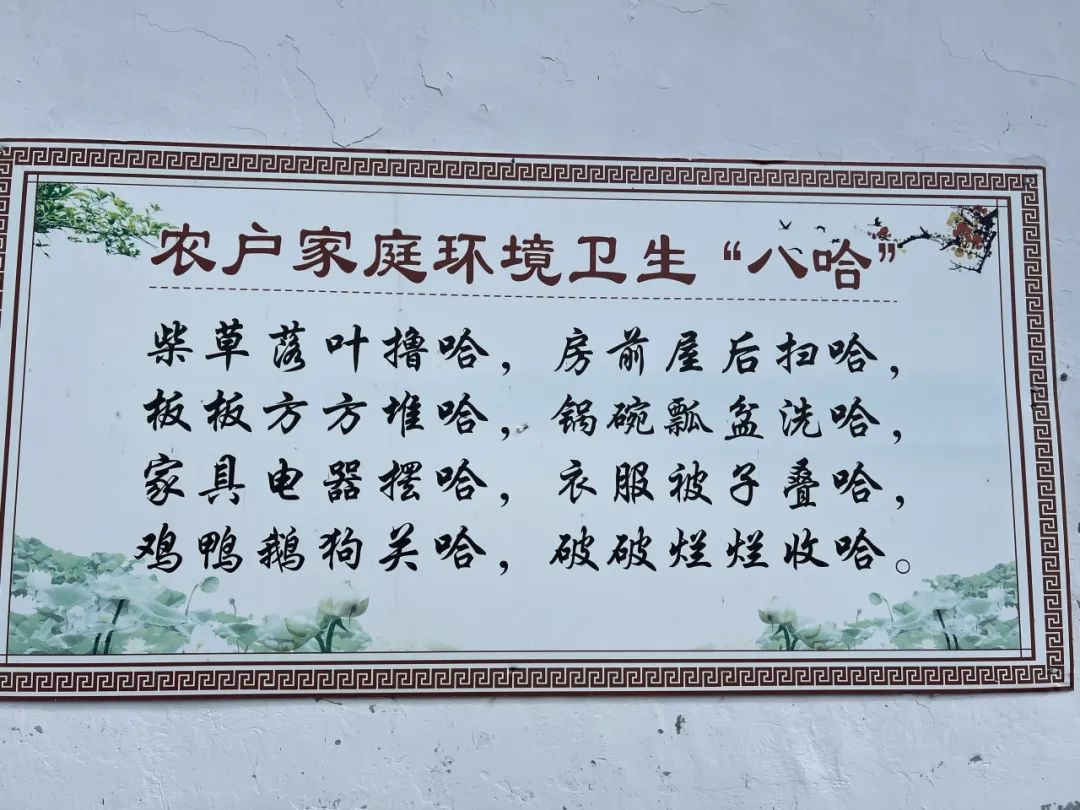 农户家庭环境卫生“八哈”
柴草落叶撸哈，房前屋后扫哈，
板板方方堆哈，锅碗瓢盆洗哈，
家具电器摆哈，衣服被子叠哈，
鸡鸭鹅狗关哈，破破烂烂收哈。